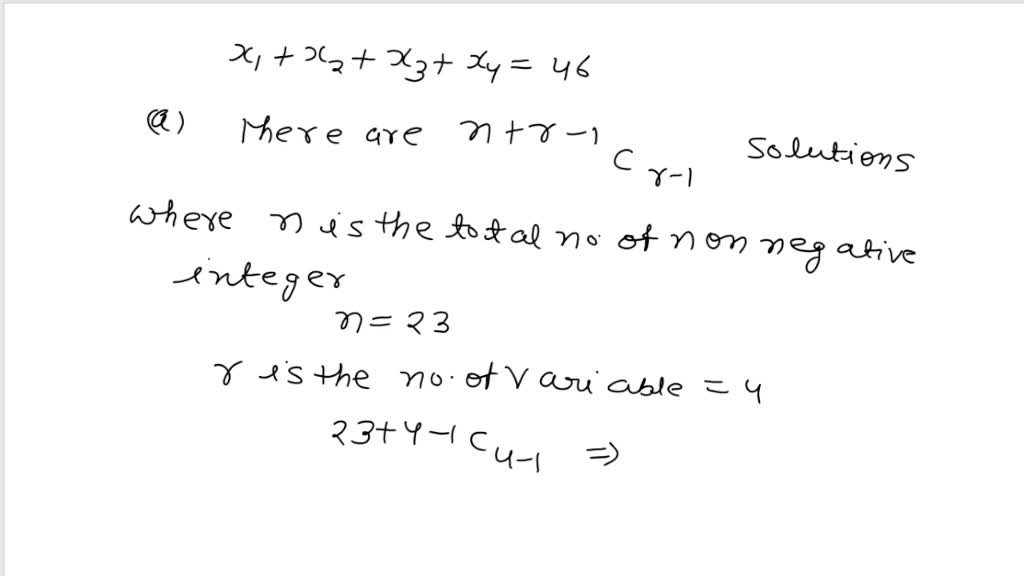 x₁ + x₂ + x₃ + x₄ = 46
(a) There are n+r-1 C r-1 Solutions
where n is the total no. of non negative
integer
n = 23
r is the no. of Variable = 4
23+4-1 C 4-1 ⇒